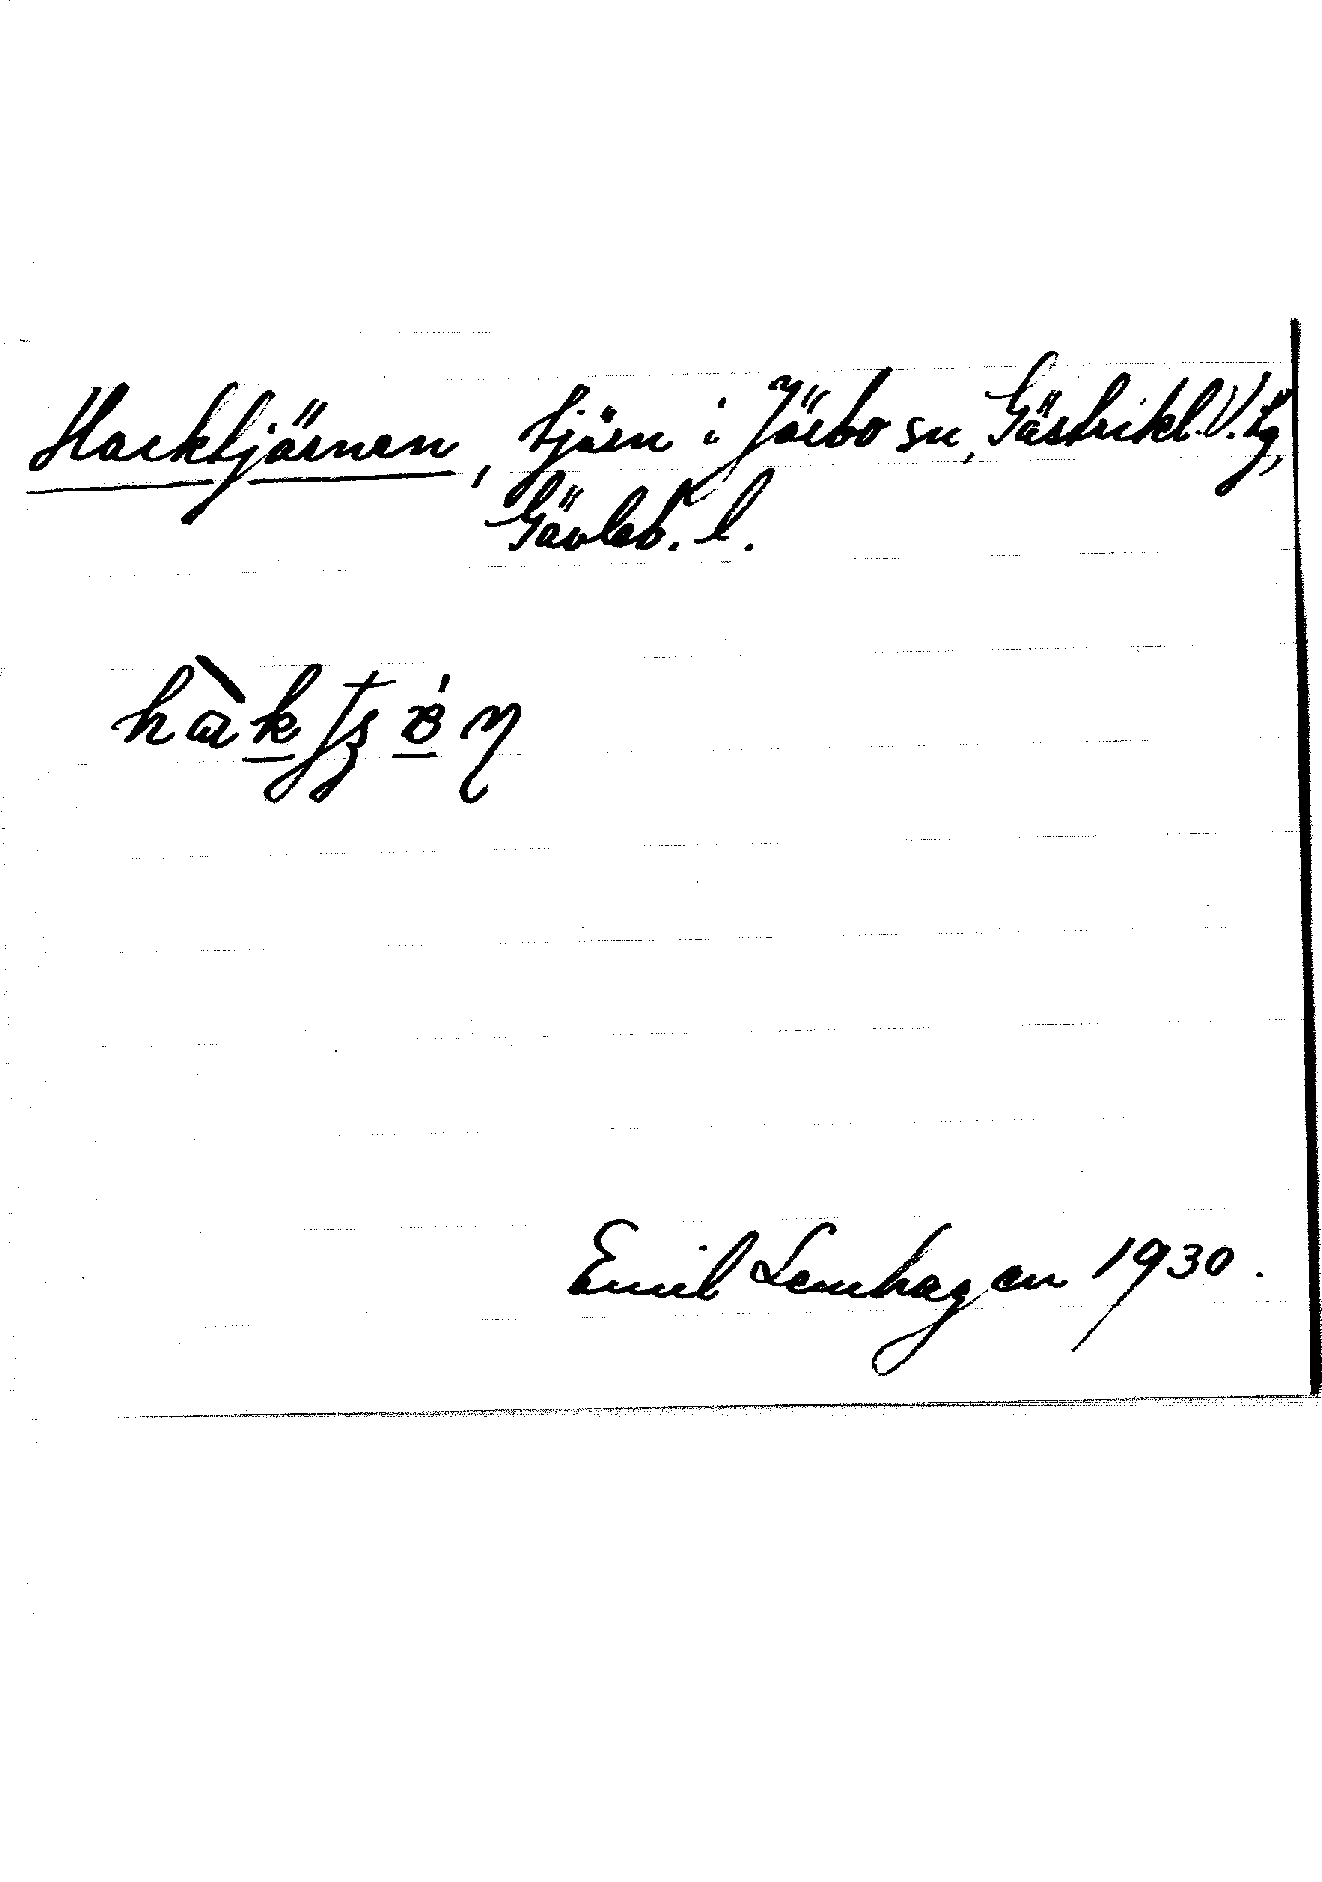 Hacktjärnen, tjärn i Järbo sn, Gästrikl. V. tg,
Gävleb. l.
Emil Lenhagen 1930.